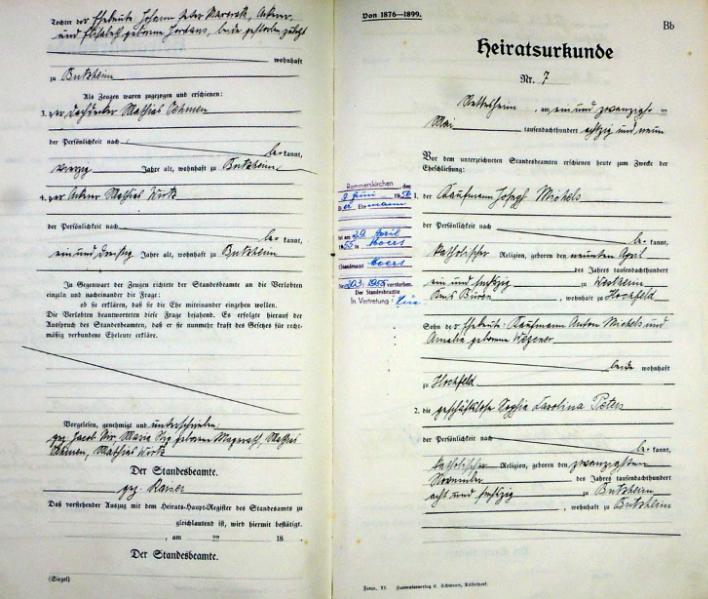 Tochter der Eheleute Johann Peter Ackerer
und Elisabeth geborene beide zuletzt
wohnhaft
zu Butzheim
Als Zeugen waren zugezogen und erschienen:
3. der Dachdecker Mathias Oehmen
der Persönlichkeit nach
be kannt,
vierzig Jahre alt, wohnhaft zu Butzheim
4. der Ackerer Mathias Wirtz
der Persönlichkeit nach
be kannt,
ein und dreißig Jahre alt, wohnhaft zu Butzheim
In Gegenwart der Zeugen richtete der Standesbeamte an die Verlobten
einzeln und nacheinander die Frage:
ob sie erklären, daß sie die Ehe miteinander eingehen wollen.
Die Verlobten beantworteten diese Frage bejahend. Es erfolgte hierauf der
Ausspruch des Standesbeamten, daß er sie nunmehr kraft des Gesetzes für recht-
mäßig verbundene Eheleute erkläre.
Vorgelesen, genehmigt und unterschrieben:
gez. Jacob Maria geborene Mathias
Oehmen, Mathias Wirtz
Der Standesbeamte.
gez.
Daß vorstehender Auszug mit dem Heirats-Haupt-Register des Standesamts zu
gleichlautend ist, wird hiermit bestätigt.
, am ten 18
Der Standesbeamte.
(Siegel)
Von 1876—1899.
Bb
Heiratsurkunde
Nr. 7
Nettesheim, am ein und zwanzigsten
Mai tausendachthundert achtzig und neun
Vor dem unterzeichneten Standesbeamten erschienen heute zum Zwecke der
Eheschließung:
1. der Kaufmann Joseph Michels
der Persönlichkeit nach
be kannt,
katholischer Religion, geboren den neunten April
des Jahres tausendachthundert
ein und sechzig zu
Amt Büren, wohnhaft zu Hochfeld
Sohn der Eheleute Kaufmann Anton Michels und
Amalia geborene
beide wohnhaft
zu Hochfeld
2. die geschäftslose Sophia Carolina Peters
der Persönlichkeit nach
be kannt,
katholischer Religion, geboren den zwanzigsten
November des Jahres tausendachthundert
acht und sechzig zu Butzheim
, wohnhaft zu Butzheim
Rommerskirchen den
Juni
Ehemann
ist am 29 April
1955 in Moers
Standesamt Moers
1955 verstorben.
Der Standesbeamte
In Vertretung: